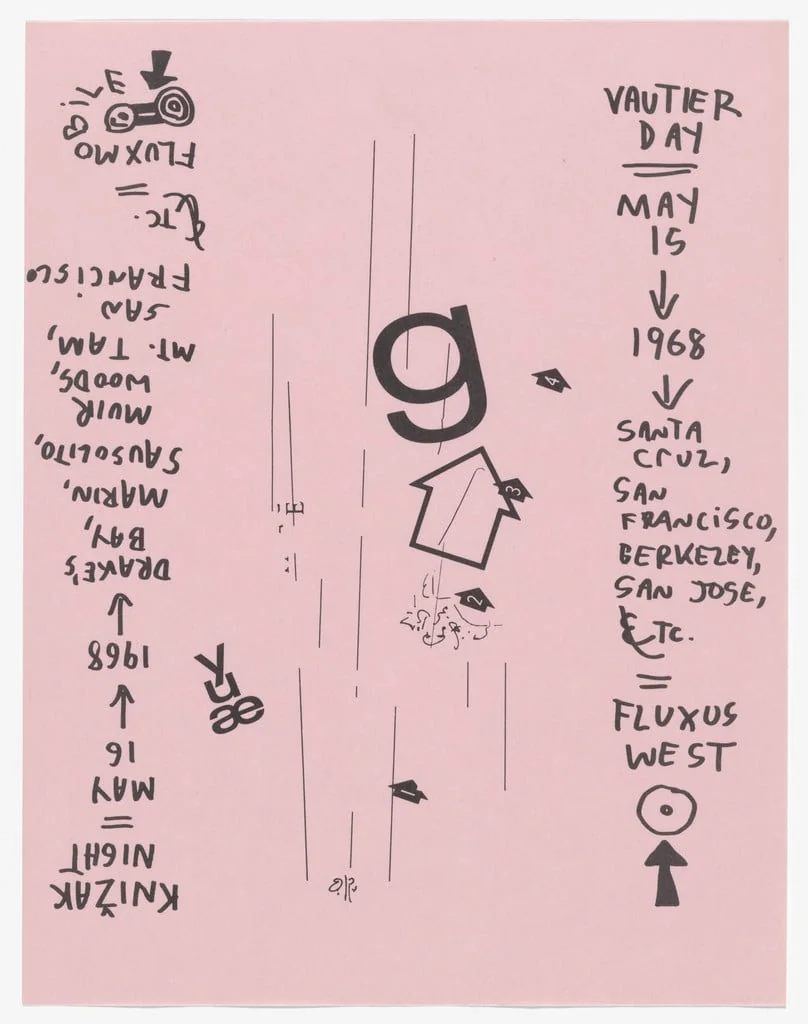 VAUTIER
DAY
MAY
15
↓
1968
↓
SANTA
CRUZ,
SAN
FRANCISCO,
BERKELEY,
SAN JOSE,
ETC.
=
FLUXUS
WEST
KNIŽAK
NIGHT
=
MAY
16
↓
1968
↓
DRAKE'S
BAY,
MARIN,
SAUSOLITO,
MUIR
WOODS,
MT. TAM,
SAN
FRANCISCO
ETC.
=
FLUXMO
BILE
g
4
3
2
1
y
u
æ